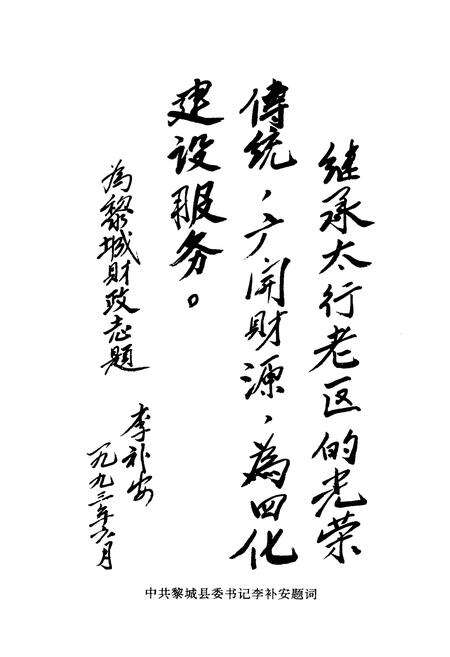 继承太行老区的光荣
傳统，广開財源，為四化
建设服务。
為黎城財政志题
李补安
一九九三年六月
中共黎城县委书记李补安题词